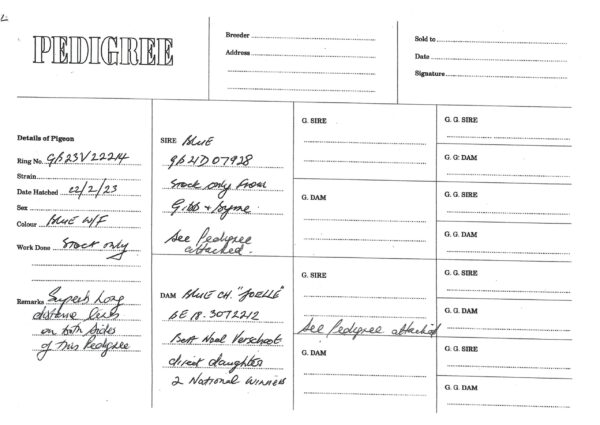 PEDIGREE
Breeder
Address
Sold to
Date
Signature
Details of Pigeon
Ring No. GB23V22214
Strain
Date Hatched 22/2/23
Sex
Colour BLUE W/F
Work Done Stock only
Remarks Superb Long
distance lines
on both sides
of this Pedigree
SIRE BLUE
GB21D07928
Stock only from
Gibb +
See Pedigree
attached.
DAM BLUE CH. "JOELLE"
BE 18. 3072212
Bert Noel Verschoot
direct daughter
2 National winners
G. SIRE
G. DAM
G. SIRE
See Pedigree attached
G. DAM
G. G. SIRE
G. G. DAM
G. G. SIRE
G. G. DAM
G. G. SIRE
G. G. DAM
G. G. SIRE
G. G. DAM